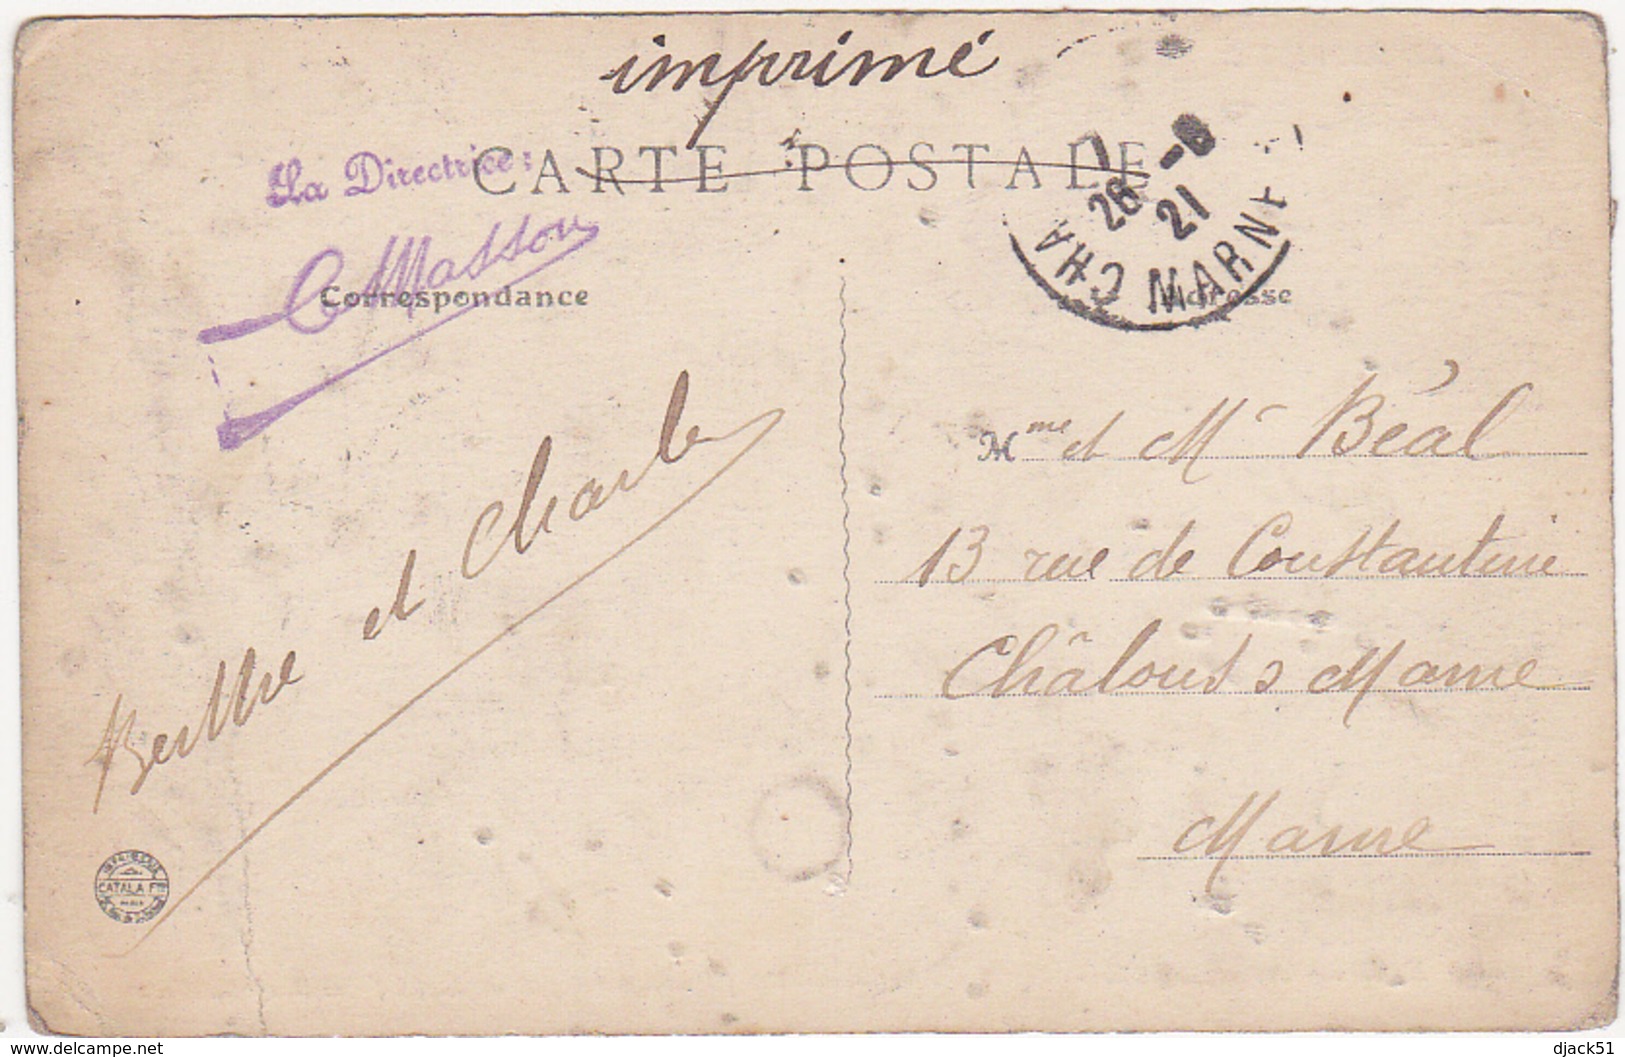 imprimé
CARTE POSTALE
La Directrice:
C. Masson
Correspondance
Adresse
26 -8
21
CHA MARNE
Berthe et Charle
Mme et Mr Béal
13 rue de Constantine
Châlons s Marne
Marne
CATALA Fres
PARIS
delcampe.net
djack51